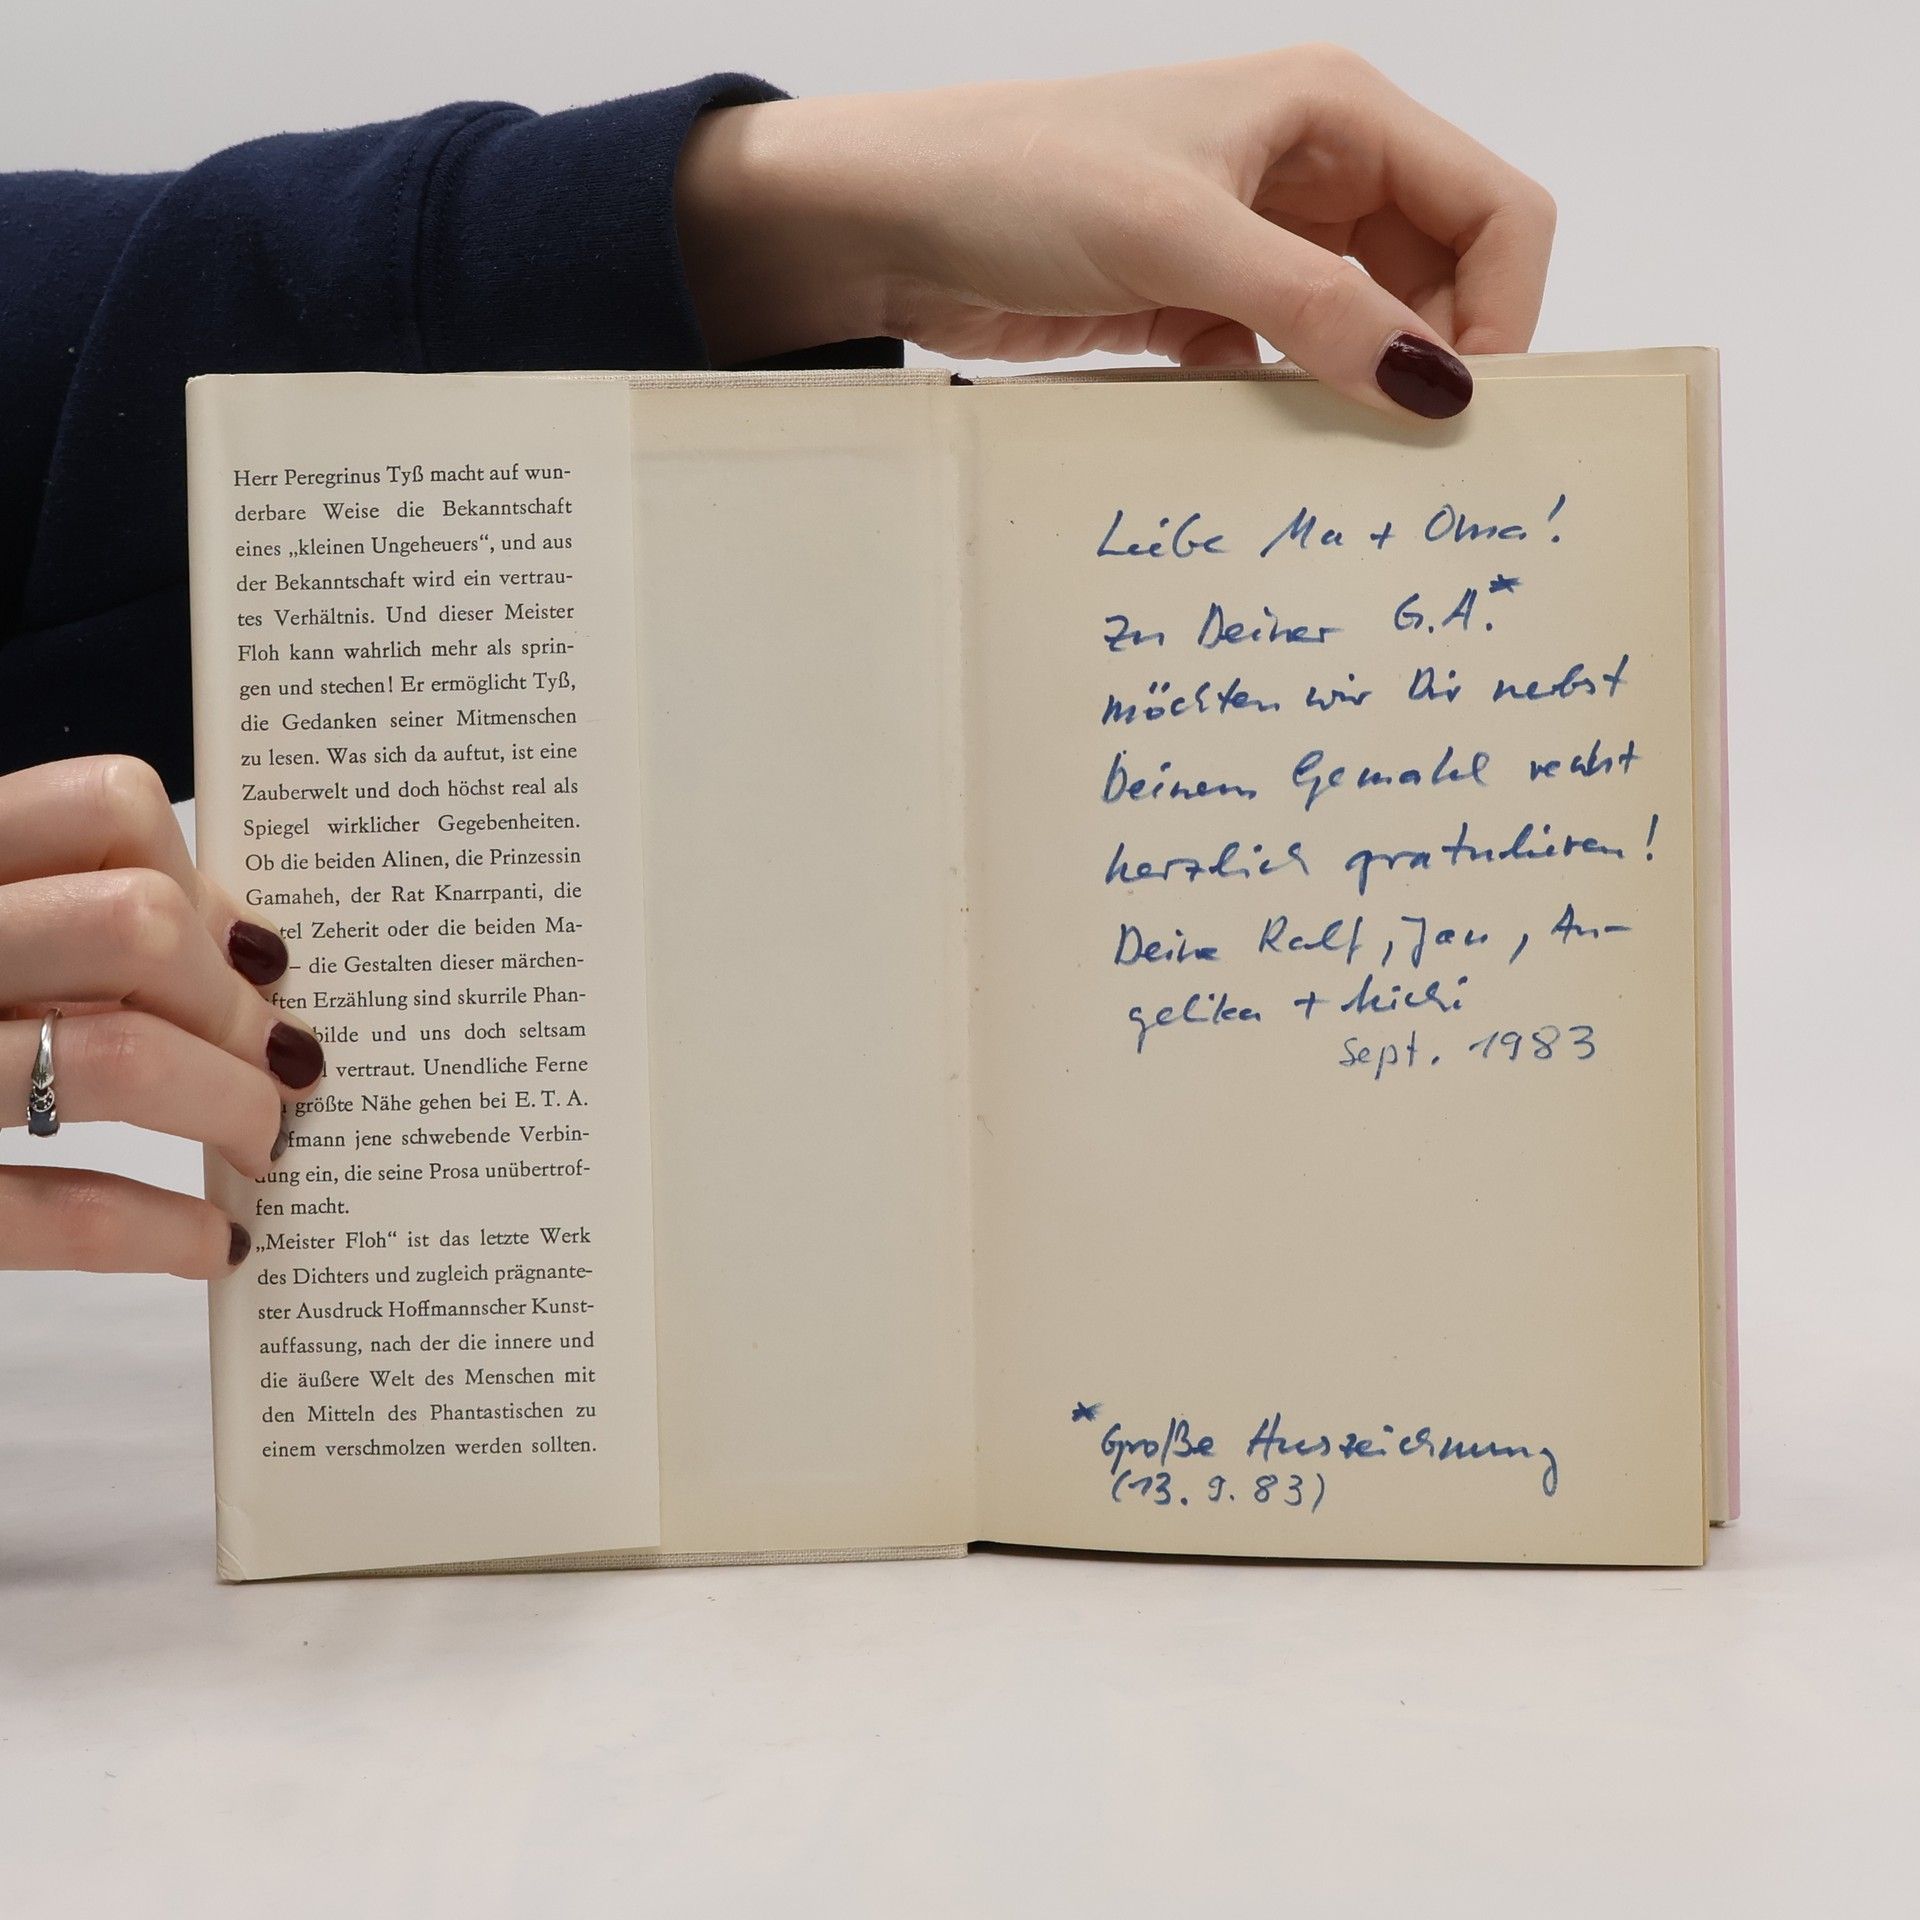 Herr Peregrinus Tyß macht auf wun-
derbare Weise die Bekanntschaft
eines „kleinen Ungeheuers“, und aus
der Bekanntschaft wird ein vertrau-
tes Verhältnis. Und dieser Meister
Floh kann wahrlich mehr als sprin-
gen und stechen! Er ermöglicht Tyß,
die Gedanken seiner Mitmenschen
zu lesen. Was sich da auftut, ist eine
Zauberwelt und doch höchst real als
Spiegel wirklicher Gegebenheiten.
Ob die beiden Alinen, die Prinzessin
Gamaheh, der Rat Knarrpanti, die
tel Zeherit oder die beiden Ma-
– die Gestalten dieser märchen-
ften Erzählung sind skurrile Phan-
bilde und uns doch seltsam
vertraut. Unendliche Ferne
größte Nähe gehen bei E. T. A.
fmann jene schwebende Verbin-
dung ein, die seine Prosa unübertrof-
fen macht.
„Meister Floh“ ist das letzte Werk
des Dichters und zugleich prägnante-
ster Ausdruck Hoffmannscher Kunst-
auffassung, nach der die innere und
die äußere Welt des Menschen mit
den Mitteln des Phantastischen zu
einem verschmolzen werden sollten.
Liebe Ma + Oma!
Zu Deiner G.A.*
möchten wir Dir nebst
Deinem Gemahl recht
herzlich gratulieren!
Deine Ralf, Jan, An-
gelika + Michi
Sept. 1983
* Große Auszeichnung
(13. 9. 83)